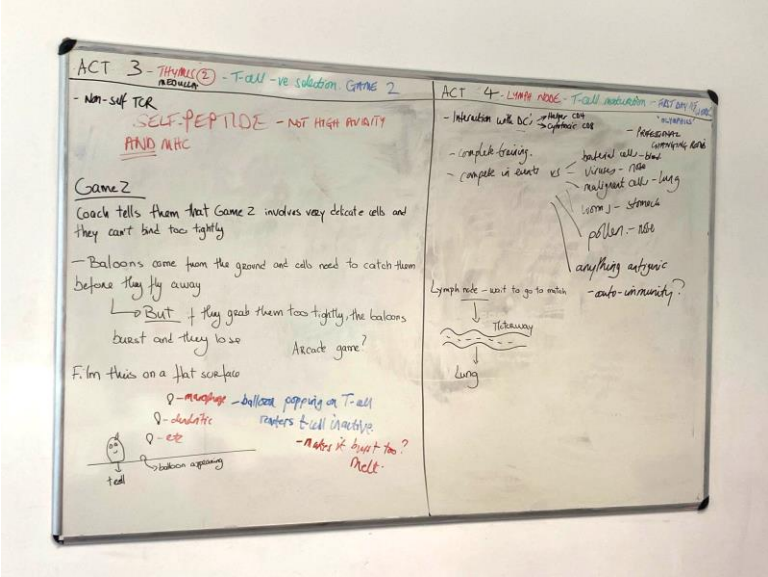 ACT 3 - THYMUS 2 - T-cell -ve selection. GAME 2
MEDULLA
- Non-self TCR
SELF-PEPTIDE - NOT HIGH AVIDITY
AND MHC
Game 2
Coach tells them that Game 2 involves very delicate cells and
they can't bind too tightly
- Baloons come from the ground and cells need to catch them
before they fly away
BUT if they grab them too tightly, the baloons
burst and they lose
Arcade game?
Film this on a flat surface
- macrophage
- dendritic
- etc
- balloon popping on T-cell
renders t-cell inactive
- makes it burst too?
Melt.
balloon appearing
t cell
ACT 4 - LYMPH NODE - T-cell maturation - FIRST DAY OF
"OLYMPICS"
- Interaction with DC's Helper CD4
Cytotoxic CD8
- PROFESSIONAL
CHANGING ROOMS
- complete training.
- compete in events vs
bacterial cells - blood
viruses - nose
malignant cells - lung
worms - stomach
pollen - nose
anything antigenic
- auto-immunity?
Lymph node - wait to go to match
Motorway
Lung